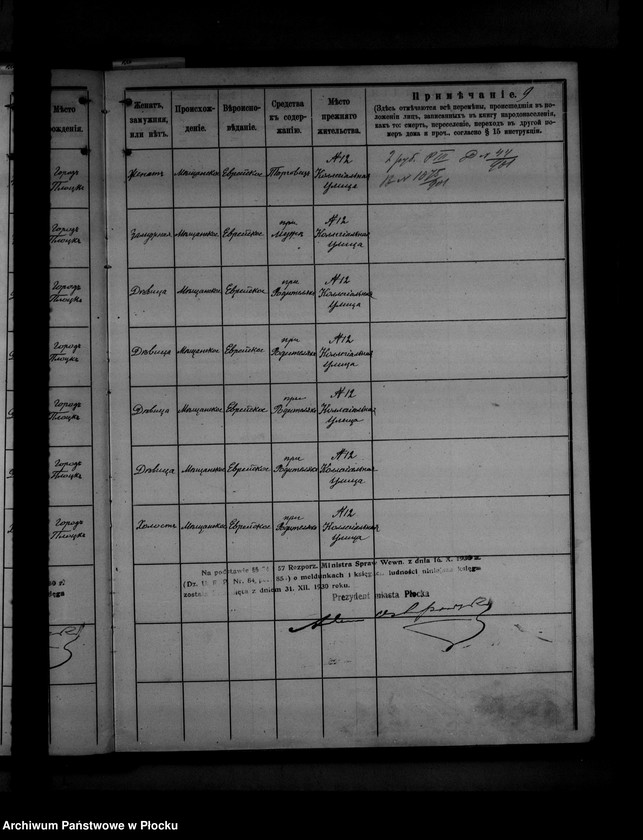 9
Мѣсто
рожденія.
Женатъ,
замужняя,
или нѣтъ.
Происхож-
деніе.
Вѣроиспо-
вѣданіе.
Средства
къ содер-
жанію.
Мѣсто
прежняго
жительства.
Примѣчаніе.
(Здѣсь отмѣчаются всѣ перемѣны, происшедшія въ по-
ложеніи лицъ, записанныхъ въ книгу народонаселенія,
какъ то: смерть, переселеніе, переходъ въ другой но-
меръ дома и проч., согласно § 15 инструкціи.
Городъ
Плоцкъ
Женатъ
Мѣщанское
Еврейское
Торговецъ
№12
Коллегіальная
улица
2 руб.
Городъ
Плоцкъ
Замужняя
Мѣщанское
Еврейское
при
Мужѣ
№12
Коллегіальная
улица
Городъ
Плоцкъ
Дѣвица
Мѣщанское
Еврейское
при
Родителяхъ
№12
Коллегіальная
улица
Городъ
Плоцкъ
Дѣвица
Мѣщанское
Еврейское
при
Родителяхъ
№12
Коллегіальная
улица
Городъ
Плоцкъ
Дѣвица
Мѣщанское
Еврейское
при
Родителяхъ
№12
Коллегіальная
улица
Городъ
Плоцкъ
Дѣвица
Мѣщанское
Еврейское
при
Родителяхъ
№12
Коллегіальная
улица
Городъ
Плоцкъ
Холостъ
Мѣщанское
Еврейское
при
Родителяхъ
№12
Коллегіальная
улица
Na podstawie §§ 57 Rozporz. Ministra Spraw Wewn. z dnia 16. X. 1930 r.
(Dz. U. R. P. Nr. 84, poz. 653) o meldunkach i księgach ludności niniejsza księga
została z dniem 31. XII. 1930 roku.
Prezydent miasta Płocka
Archiwum Państwowe w Płocku